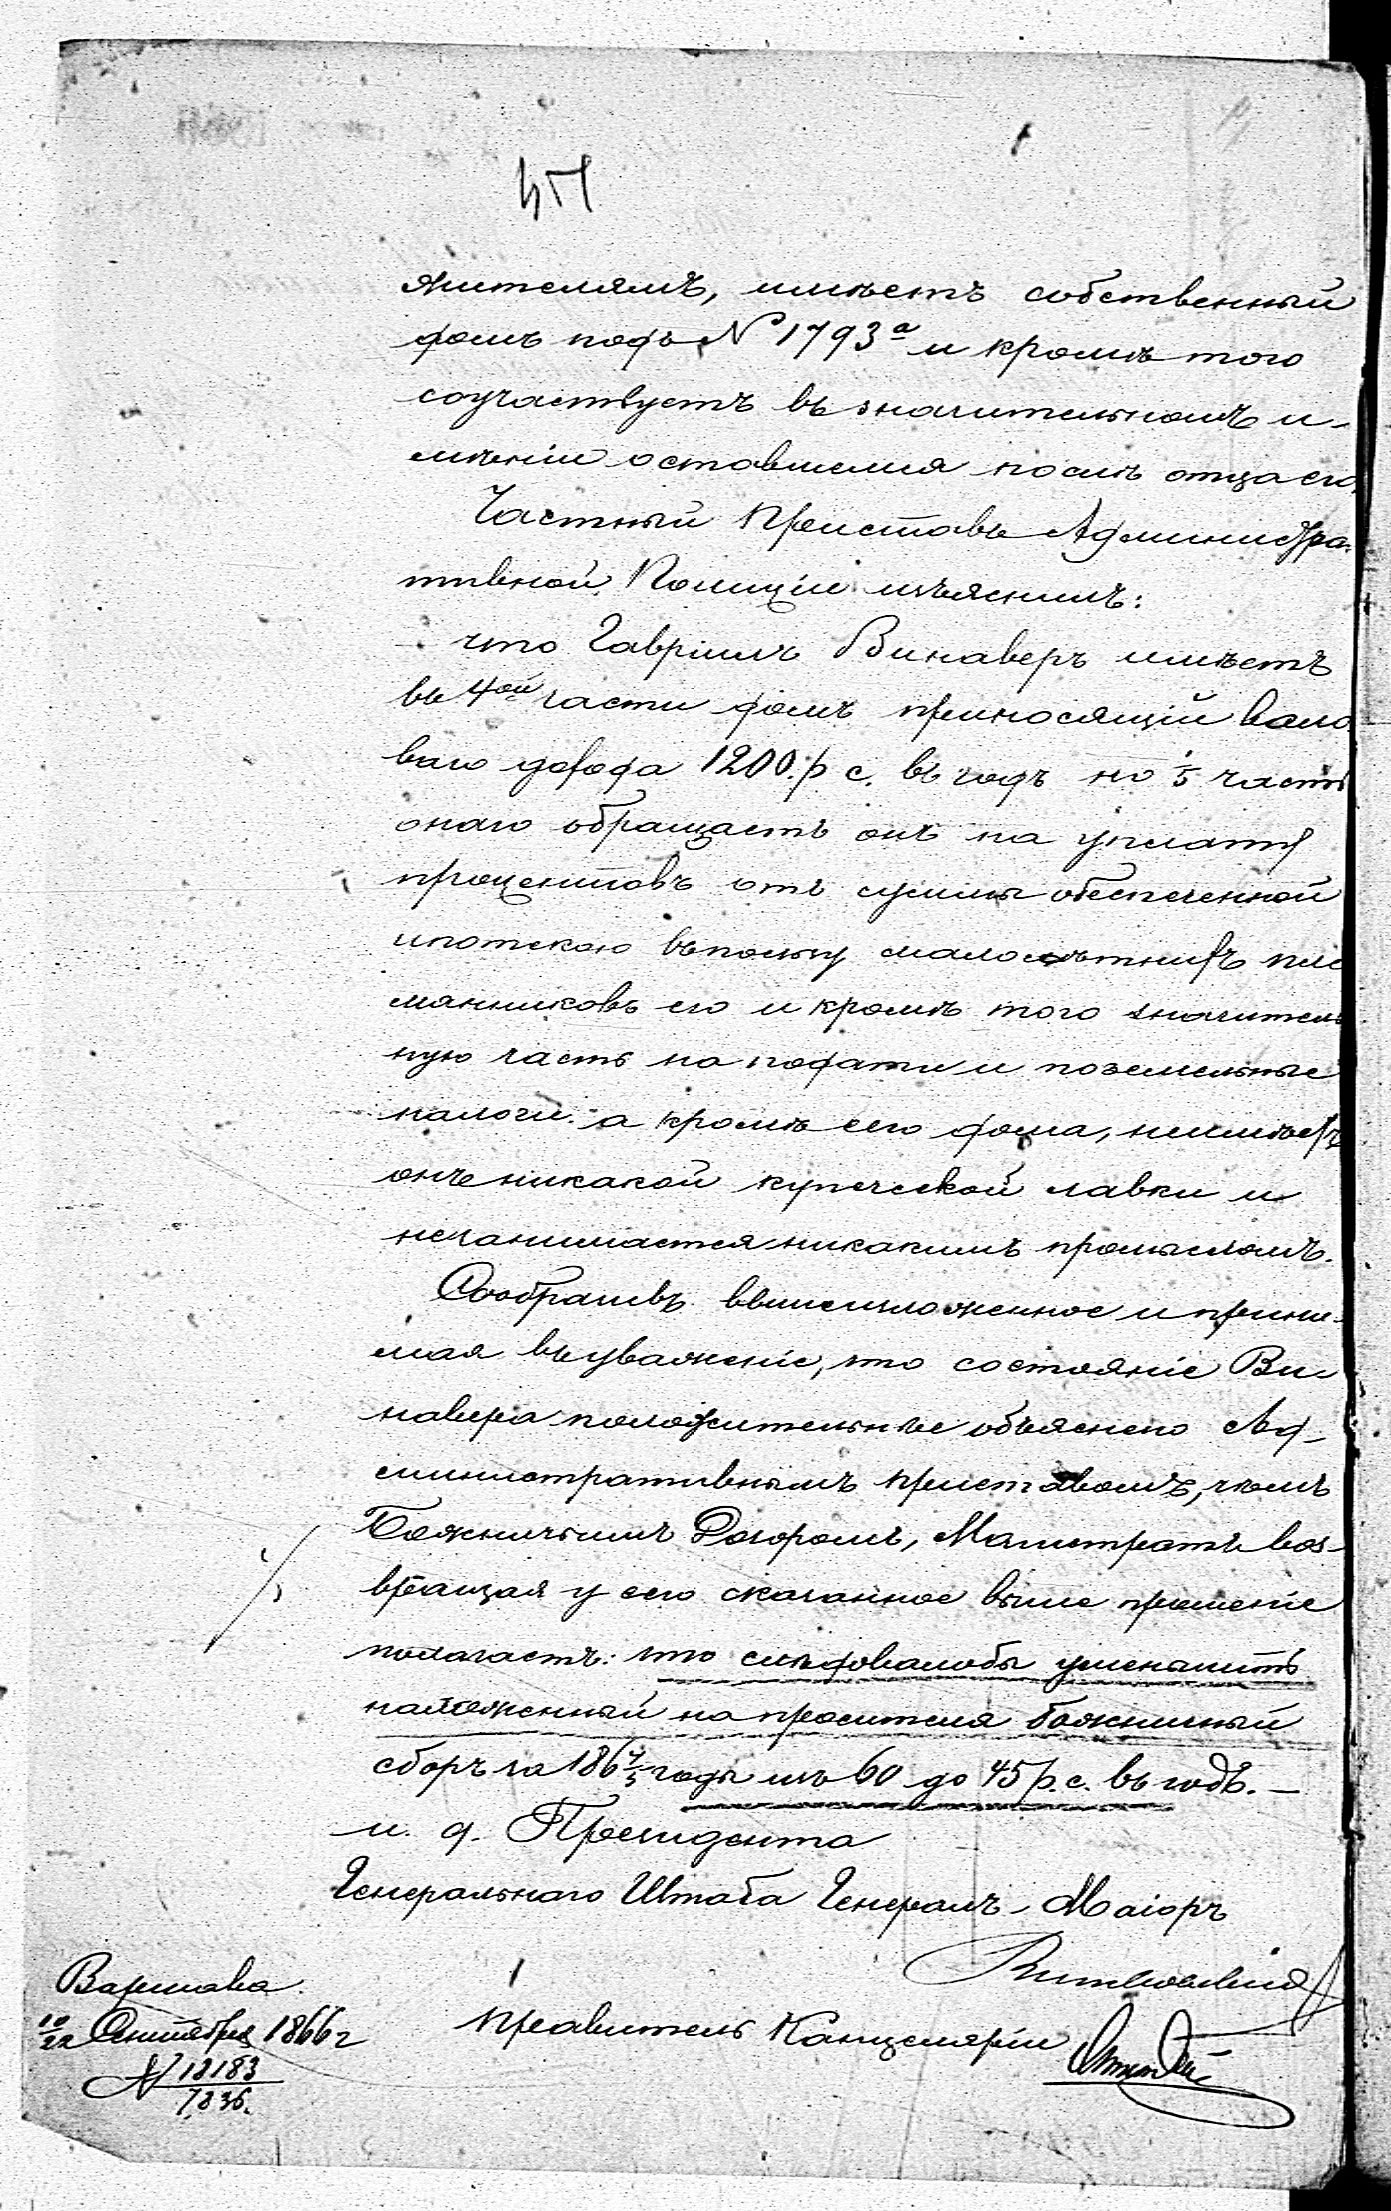 жителямъ, имѣетъ собственный
домъ подъ № 1793а и кромѣ того
соучаствуетъ въ значительномъ и-
мѣніи оставшемся послѣ отца его.
Частный Приставъ Администра-
тивной Полиціи изъяснилъ:
что Гавріилъ Винаверъ имѣетъ
въ 4ой части домъ приносящій вало-
ваго дохода 1200. р с. въ годъ но 1/5 часть
онаго обращаетъ онъ на уплату
процентовъ отъ суммы обеспеченной
ипотекою въ пользу малолѣтнихъ пле
мянниковъ его и кромѣ того значитель
ную часть на подати и поземельные
налоги. а кромѣ сего дома, неимѣетъ
онъ никакой купеческой лавки и
незанимается никакимъ промысломъ.
Сообразивъ вышеизложенное и прини-
мая въ уваженіе, что состояніе Ви-
навера положительнѣе объяснено Ад-
министративнымъ приставомъ, чѣмъ
Божничьимъ Дозоромъ, Магистратъ воз-
вращая у сего сказанное выше прошеніе
полагаетъ: что слѣдовалобы уменьшить
наложенный на просителя божничный
сборъ за 1864/5 годы изъ 60 до 45 р. с. въ годъ. —
и. д. Президента
Генеральнаго Штаба Генералъ-Маіоръ
Витковскій
Правитель Канцеляріи
Варшава.
10/22 Сентября 1866 г
№ 18183
7836.